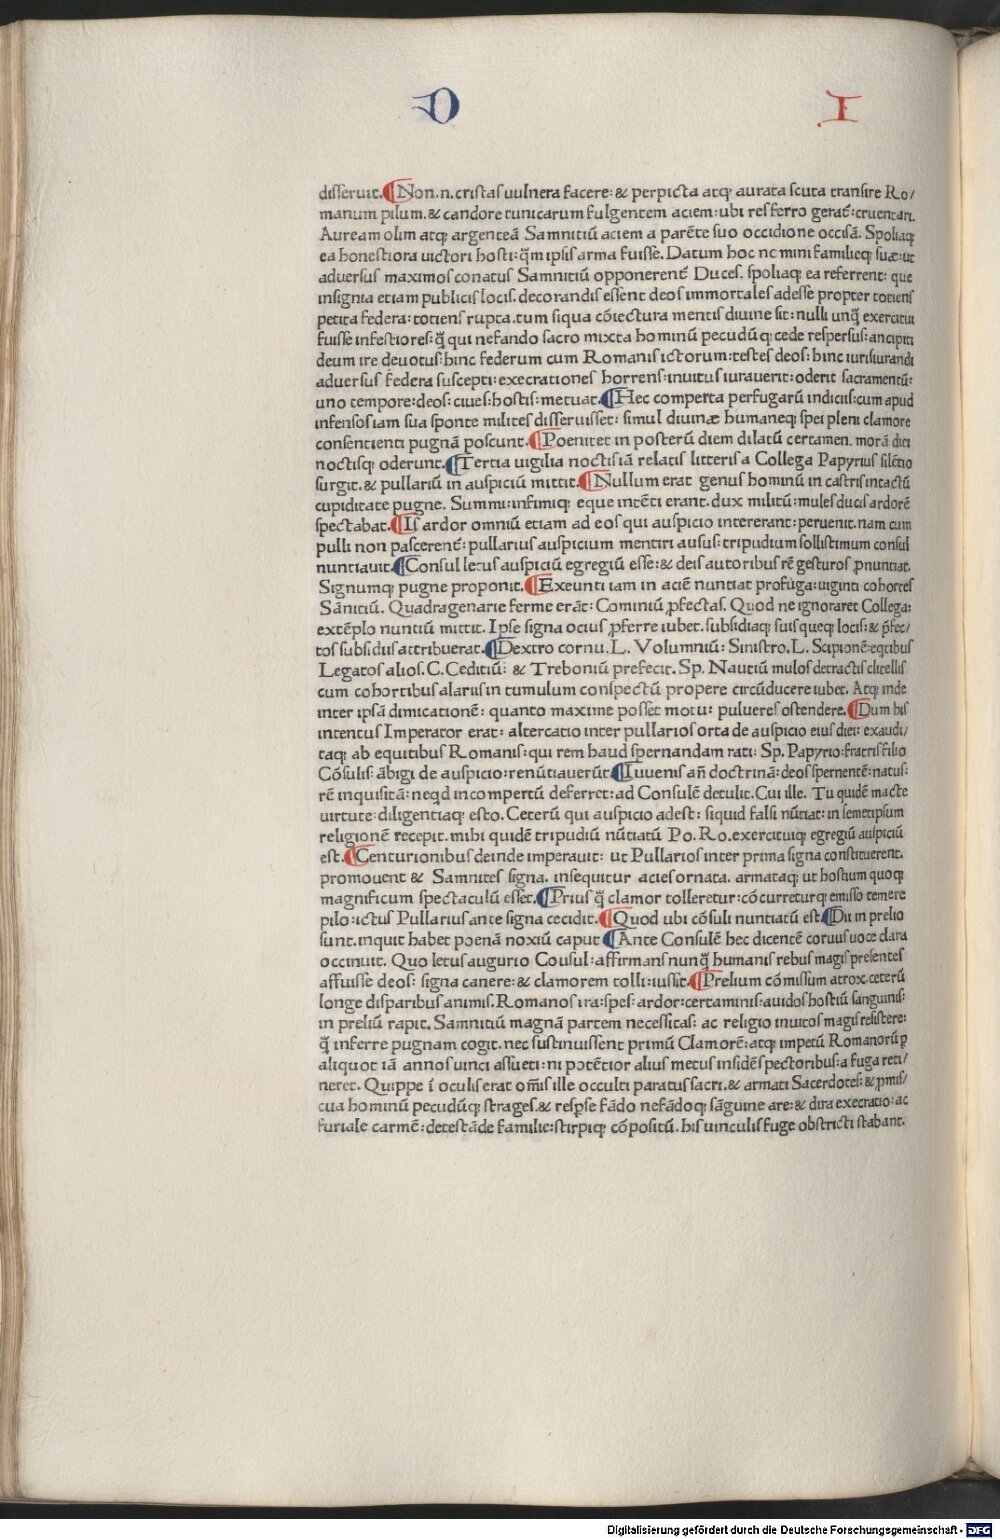 D I
disseruit. Non.n.cristas uulnera facere: & perpicta atq; aurata scuta transire Ro/
manum pilum. & candore tunicarum fulgentem aciem: ubi res ferro gerat̃: cruentari.
Auream olim atq; argenteã Samnitiũ aciem a parẽte suo occidione occisã. Spoliaq;
ea honestiora uictori hosti: q̃m ipsis arma fuisse. Datum hoc nomini familieq; suæ: ut
aduersus maximos conatus Samnitiũ opponerent̃ Duces. spoliaq; ea referrent: que
insignia etiam publicis locis. decorandis essent deos immortales adesse propter totiens
petita federa: totiens rupta. tum siqua cõiectura mentis diuine sit: nulli unq̃ exercitui
fuisse infestiores: q̃ qui nefando sacro mixta hominũ pecudũq; cede respersus: ancipiti
deum ire deuotus: hinc federum cum Romanis ictorum: testes deos: hinc iurisiurandi
aduersus federa suscepti: execrationes horrens: inuitus iurauerit: oderit sacramentũ:
uno tempore: deos: ciues: hostis: metuat. Hec comperta perfugarũ indiciis: cum apud
infensos iam sua sponte milites disseruisset: simul diuinæ humaneq; spei pleni clamore
consentienti pugnã poscunt. Poenitet in posterũ diem dilatũ certamen. morã diei
noctisq; oderunt. Tertia uigilia noctis iã relatis litteris a Collega Papyrius silẽtio
surgit. & pullariũ in auspiciũ mittit. Nullum erat genus hominũ in castris intactũ
cupiditate pugne. Summi: infimiq; eque intẽti erant. dux militũ: miles ducis ardorẽ
spectabat. Is ardor omniũ etiam ad eos qui auspicio intererant: peruenit. nam cum
pulli non pascerent̃: pullarius auspicium mentiri ausus: tripudium sollistimum consul
nuntiauit. Consul letus auspiciũ egregiũ esse: & deis autoribus rẽ gesturos ꝓnuntiat.
Signumq; pugne proponit. Exeunti iam in aciẽ nuntiat profuga: uiginti cohortes
Sãnitiũ. Quadragenarie ferme erãt: Cominiũ ꝓfectas. Quod ne ignoraret Collega:
extẽplo nuntiũ mittit. Ipse signa ocius ꝓferre iubet. subsidiaq; suis queq; locis: & p̃fec/
tos subsidiis attribuerat. Dextro cornu. L. Volumniũ: Sinistro. L. Scipionẽ: eq̃tibus
Legatos alios. C. Ceditiũ: & Treboniũ prefecit. Sp. Nautiũ mulos detractis clitellis
cum cohortibus alariis in tumulum conspectũ propere circũducere iubet. Atq; inde
inter ipsã dimicationẽ: quanto maxime posset motu: pulueres ostendere. Dum his
intentus Imperator erat: altercatio inter pullarios orta de auspicio eius diei: exaudi/
taq; ab equitibus Romanis: qui rem haud spernandam rati: Sp. Papyrio: fratris filio
Cõsulis: ãbigi de auspicio: renũtiauerũt. Iuuenis añ doctrinã: deos spernentẽ: natus:
rẽ inquisitã: neq̃d incompertũ deferret: ad Consulẽ detulit. Cui ille. Tu quidẽ macte
uirtute: diligentiaq; esto. Ceterũ qui auspicio adest: siquid falsi nũtiat: in semetipsum
religionẽ recepit. mihi quidẽ tripudiũ nũtiatũ Po. Ro. exercituiq; egregiũ auspiciũ
est. Centurionibus deinde imperauit: ut Pullarios inter prima signa constituerent.
promouent & Samnites signa. insequitur acies ornata. armataq; ut hostium quoq;
magnificum spectaculũ esset. Prius q̃ clamor tolleretur: cõcurreturq; emisso temere
pilo: ictus Pullarius ante signa cecidit. Quod ubi cõsuli nuntiatũ est. Dii in prelio
sunt. inquit habet poenã noxiũ caput Ante Consulẽ hec dicentẽ coruus uoce clara
occinuit. Quo letus augurio Cousul: affirmans nunq̃ humanis rebus magis presentes
affuisse deos: signa canere: & clamorem tolli: iussit. Prelium cõmissum atrox. ceterũ
longe disparibus animis. Romanos ira: spes: ardor: certaminis: auidos hostiũ sanguinis:
in preliũ rapit. Samnitiũ magnã partem necessitas: ac religio inuitos magis resistere:
q̃ inferre pugnam cogit. nec sustinuissent primũ Clamorẽ: atq; impetũ Romanorũ ꝑ
aliquot iã annos uinci assueti: ni potẽtior alius metus insidẽs pectoribus: a fuga reti/
neret. Quippe ĩ oculis erat om̃is ille occulti paratus sacri. & armati Sacerdotes: & ꝓmis/
cua hominũ pecudũq; strages. & resꝑse fãdo nefãdoq; sãguine are: & dira execratio: ac
furiale carmẽ: detestãde familie: stirpiq; cõpositũ. his uinculis fuge obstricti stabant.
Digitalisierung gefördert durch die Deutsche Forschungsgemeinschaft - DFG